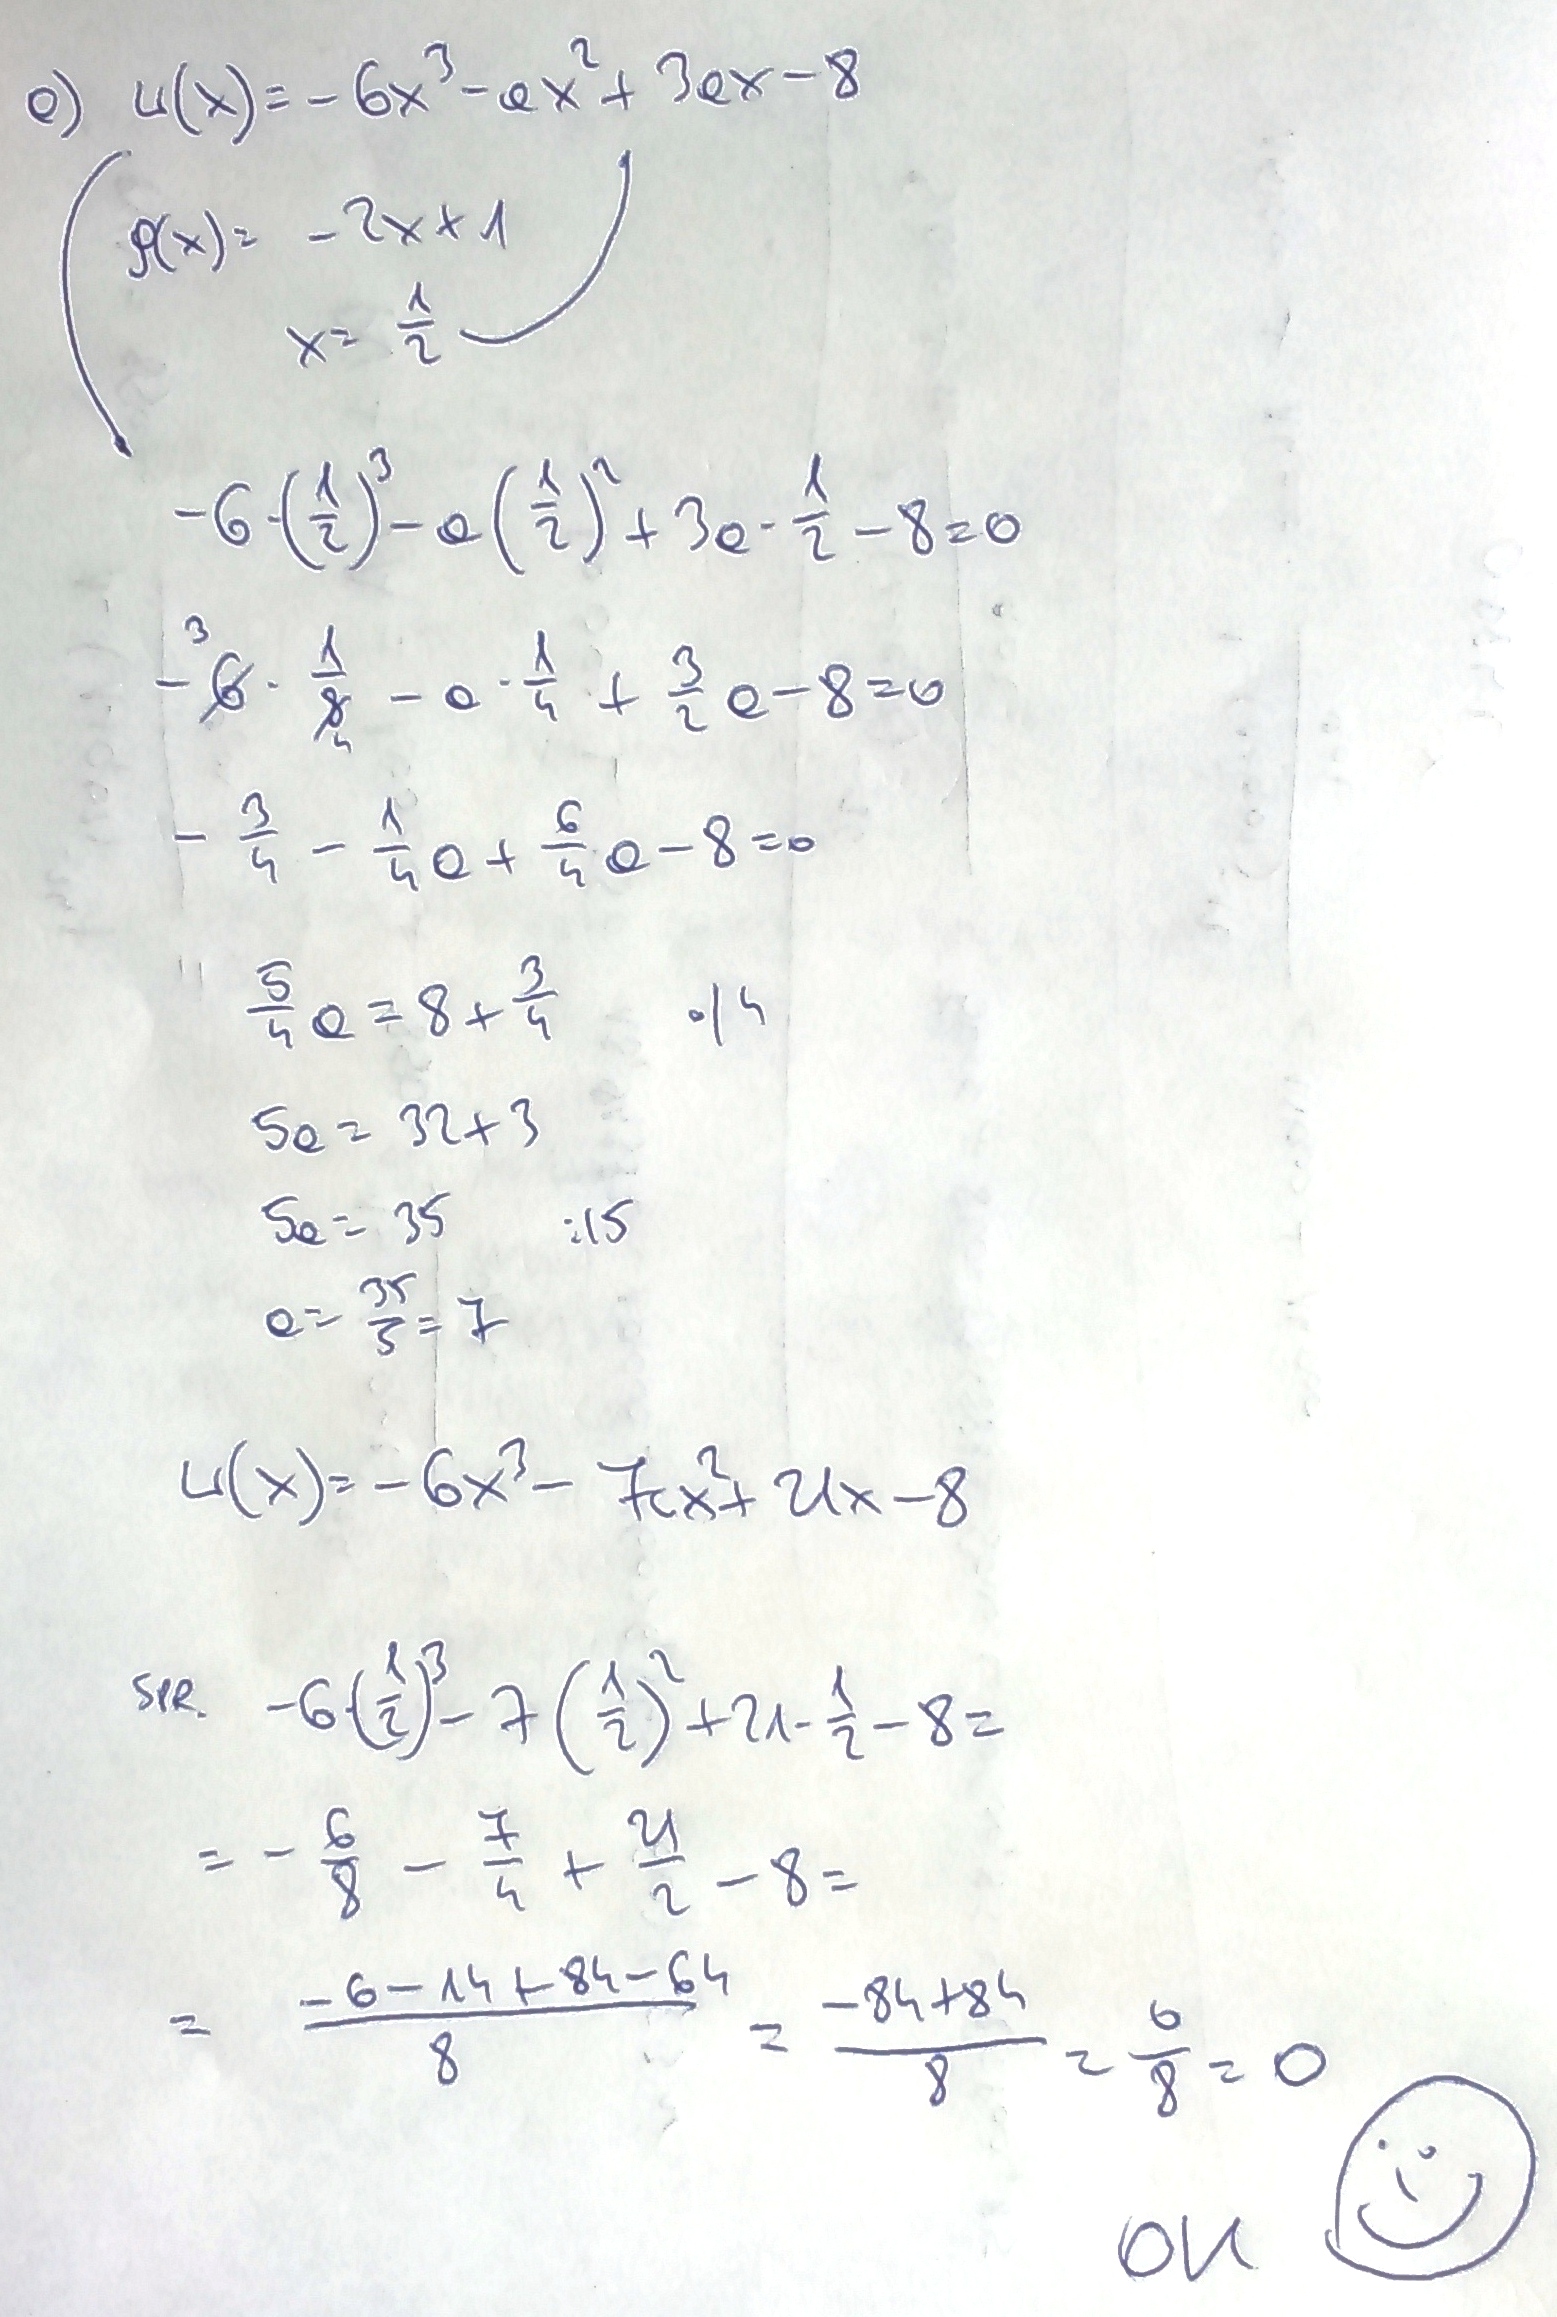 a) u(x) = -6x³ - ax² + 3ax - 8
p(x) = -2x + 1
x = 1/2
-6·(1/2)³ - a(1/2)² + 3a·1/2 - 8 = 0
-³6·1/8₄ - a·1/4 + 3/2 a - 8 = 0
-3/4 - 1/4 a + 6/4 a - 8 = 0
5/4 a = 8 + 3/4 ·/4
5a = 32 + 3
5a = 35 :/5
a = 35/5 = 7
u(x) = -6x³ - 7x² + 21x - 8
SPR. -6·(1/2)³ - 7(1/2)² + 21·1/2 - 8 =
= -6/8 - 7/4 + 21/2 - 8 =
= (-6 - 14 + 84 - 64)/8 = (-84 + 84)/8 = 0/8 = 0
OK